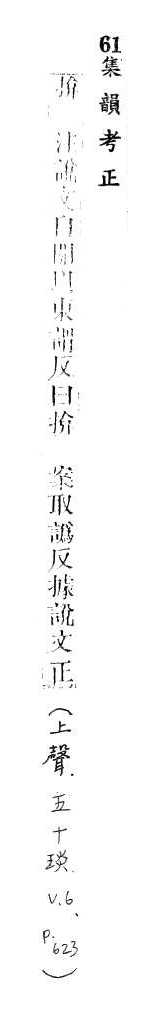 61集韻考正
拚 注說文自關以東謂反曰拚 案取譌反據說文正(上聲.五十琰.v.6、p.623)